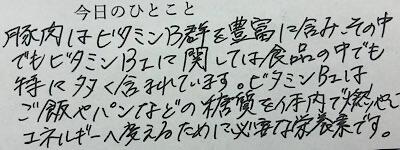 今日のひとこと
豚肉はビタミンB群を豊富に含み、その中
でもビタミンB1に関しては食品の中でも
特に多く含まれています。ビタミンB1は
ご飯やパンなどの糖質を体内で燃やして
エネルギーへ変えるために必要な栄養素です。